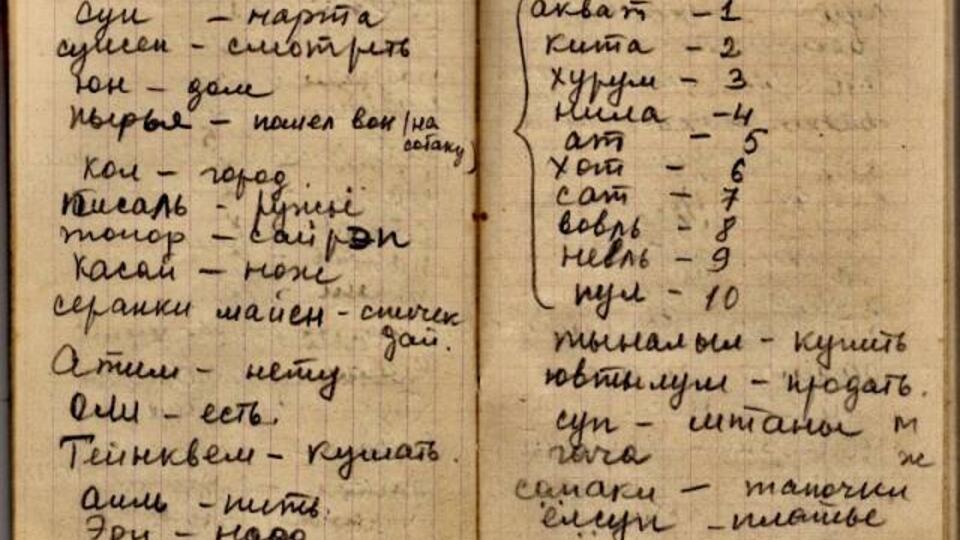 сун - нарта
сунсен - смотреть
юн - дом
пырья - пошел вон (на собаку)
кол - город
писаль - ружьё
топор - сайрэп
касай - нож
серанки майен - спичек
дай.
Атим - нету
Оли - есть.
Тейнквем - кушать.
аиль - пить.
Эри - надо
акват - 1
кита - 2
хурум - 3
нила - 4
ат - 5
хот - 6
сат - 7
вовль - 8
невль - 9
пул - 10
тыналыл - купить
ювтылум - продать.
суп - штаны м
ж
самаки - тапочки
ёлсуп - платье